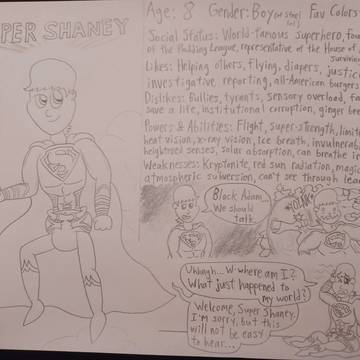 SUPER SHANEY
Age: 8 Gender: Boy Fav Colors
Social Status: World-famous superhero, fou
of the Padding League, representative of the House of
survivin
Likes: Helping others, flying, diapers, justic
investigative reporting, all-American burgers
Dislikes: Bullies, tyrants, sensory overload, fa
save a life, institutional corruption, ginger bee
Powers & Abilities: Flight, super-strength, limit
heat vision, x-ray vision, ice breath, invulnerab
heightened senses, solar absorption, can breathe i
Weaknesses: Kryptonite, red sun radiation, magic
atmospheric submersion, can't see through lea
Black Adam...
We should
talk.
Uhhngh... W-where am I?
What just happened to
my world?
Welcome, Super Shaney.
I'm sorry, but this
will not be easy
to hear...